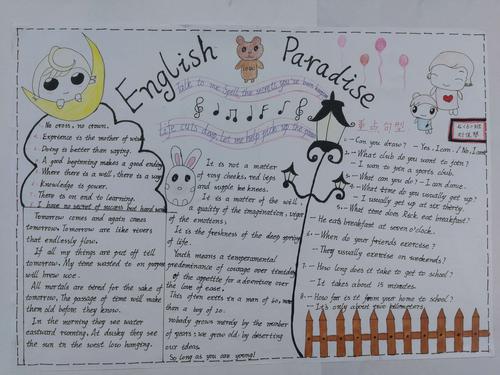 English Paradise
Talk to me Spell the secrets you've been
Life cuts deep, let me help pick up the
No cross, no crown.
Experience is the mother of wisdom
Doing is better than saying.
A good beginning makes a good ending
Where there is a well, there is a way
Knowledge is power.
There is on end to learning.
I have no secret of success but hard work
Tomorrow comes and again comes
tomorrow. Tomorrow are like rivers
that endlessly flow.
If all my things are put off till
tomorrow. My time wasted to on
will brew woe.
All mortals are tired for the sake of
tomorrow. The passage of time will make
them old before they know.
In the morning they see water
eastward running. At dusky they see
the sun in the west low hanging.
It is not a matter
of rosy cheeks, red lips
and supple knees.
It is a matter of the will,
a quality of the imagination, vigor
of the emotions.
It is the freshness of the deep spring
of life.
Youth means a temperamental
predominance of courage over timidity
of the appetite for adventure over
the love of ease.
This often exists in a man of 60 more
than a boy of 20.
nobody grows merely by the number
of years: we grow old by deserting
our ideas.
So long as you are young!
重点句型
1. - Can you draw? - Yes, I can. / No, I can't
2. - What club do you want to join?
- I want to join a sports club.
3. - What can you do? - I can dance.
4. - What time do you usually get up?
- I usually get up at six thirty.
5. - What time does Rick eat breakfast?
- He eats breakfast at seven o'clock.
6. - When do your friends exercise?
- They usually exercise on weekends!
7. - How long does it take to get to school?
- It takes about 15 minutes.
8. - How far is it from your home to school?
- It's only about two kilometers.